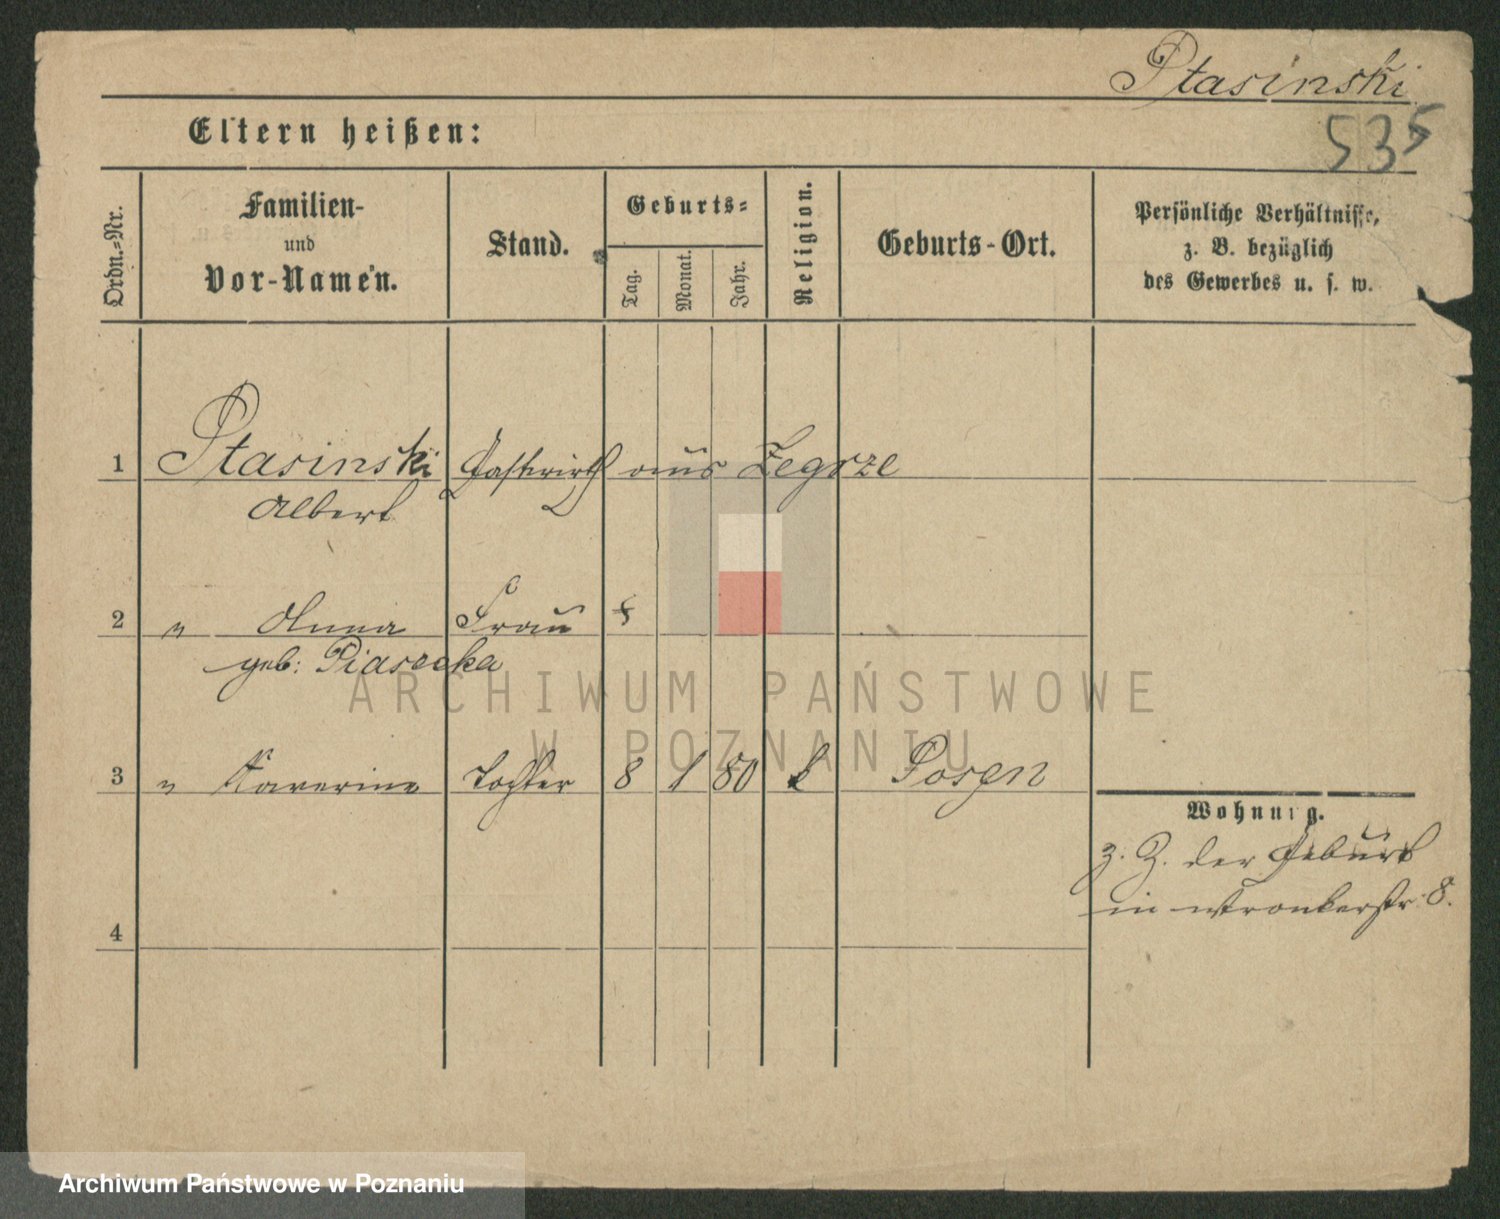 Ptasinski
535
Eltern heißen:
Ordn.=Nr.
Familien-
und
Vor-Namen.
Stand.
Geburts=
Tag.
Monat.
Jahr.
Religion.
Geburts-Ort.
Persönliche Verhältnisse,
z. B. bezüglich
des Gewerbes u. s. w.
1 Ptasinski Gastwirth aus Zegrze
Albert
2 " Anna Frau
geb: Piasecka
3 " Xaverine Tochter 8 1 80 k Posen
Wohnung.
z. Z. der Geburt
in Wronkerstr 8.
4
ARCHIWUM PAŃSTWOWE
W POZNANIU
Archiwum Państwowe w Poznaniu